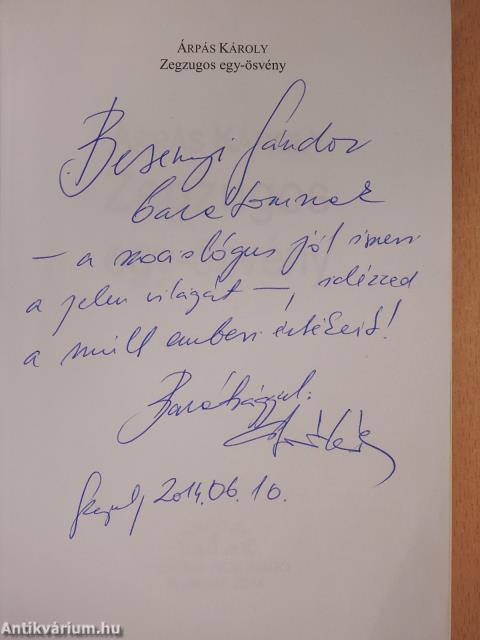 ÁRPÁS KÁROLY
Zegzugos egy-ösvény
Besenyi Sándor
barátomnak
– a szociológus jól ismeri
a jelen világát –, idézzed
a múlt emberi értékeit!
Barátsággal:
Szeged, 2014.06.10.
Antikvárium.hu